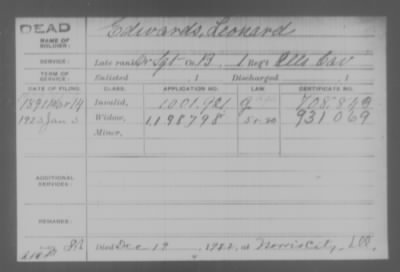 DEAD
Edwards, Leonard
NAME OF SOLDIER:
SERVICE: Late rank Or Sgt Co B, 1 Reg't Ills Cav
TERM OF SERVICE: Enlisted , 1 Discharged , 1
DATE OF FILING. CLASS. APPLICATION NO. LAW. CERTIFICATE NO.
1891 Mar 14 Invalid, 1001.961 708.849
1923 Jan 3 Widow, 1.198798 931069
Minor,
ADDITIONAL SERVICES:
REMARKS:
Died Dec 19, 1922, at Norris City, Ill.